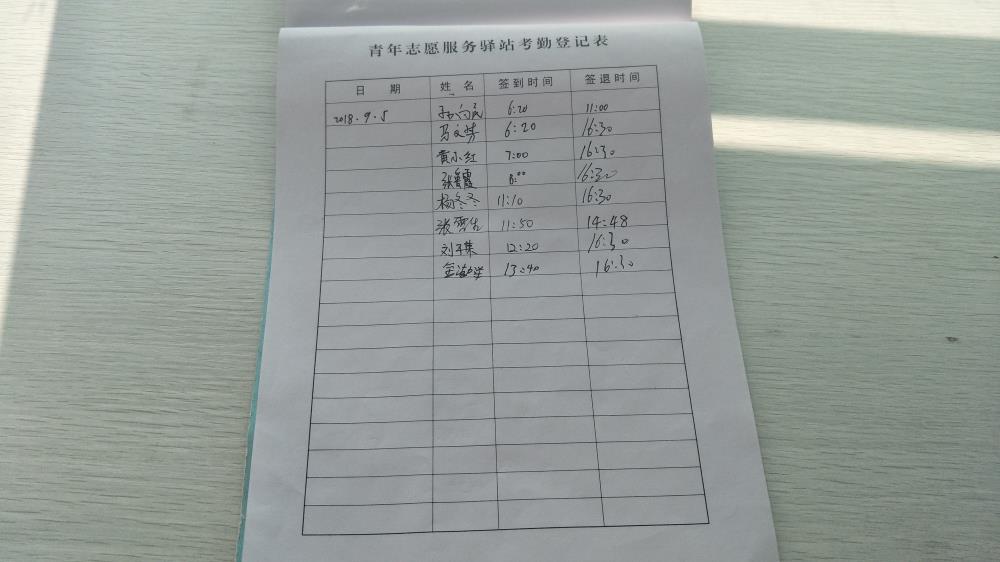 青年志愿服务驿站考勤登记表
日 期 姓 名 签到时间 签退时间
2018.9.5 孙向民 6:20 11:00
马文婧 6:20 16:30
黄小红 7:00 16:30
张鲁霞 8:00 16:30
杨冬冬 11:10 16:30
张雪 11:50 14:48
刘子集 12:20 16:30
金 13:40 16:30